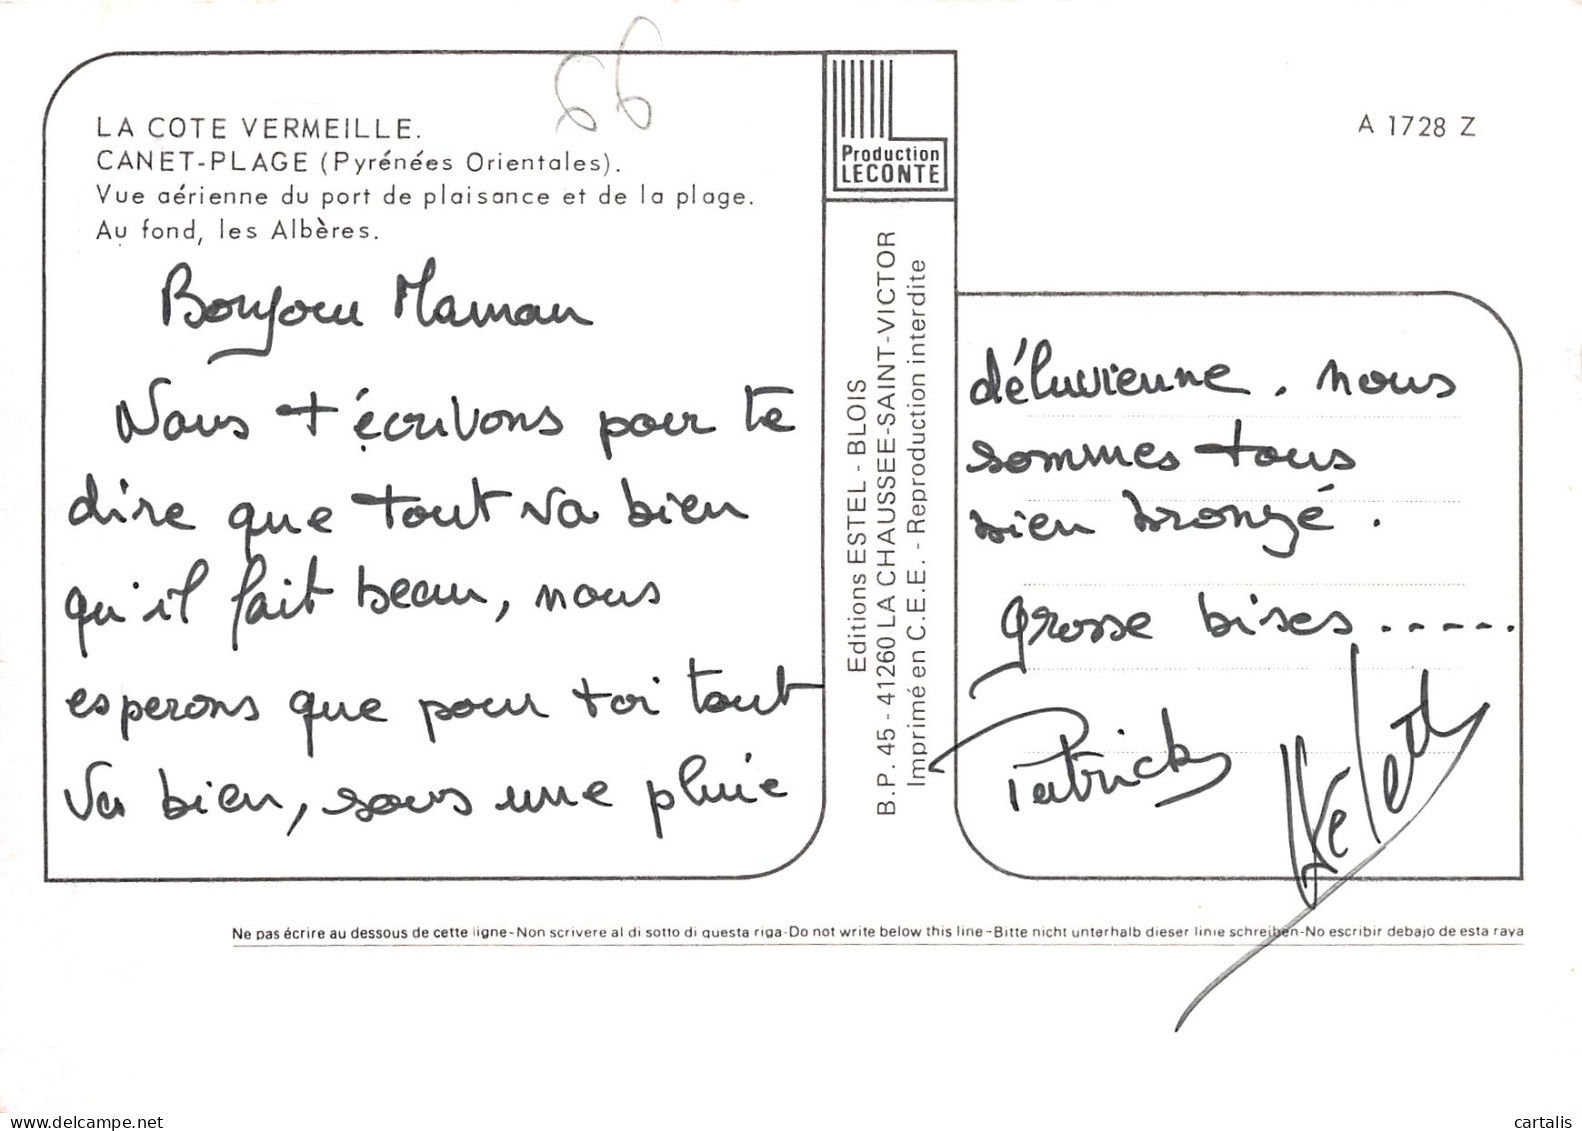 66
LA COTE VERMEILLE.
CANET-PLAGE (Pyrénées Orientales).
Vue aérienne du port de plaisance et de la plage.
Au fond, les Albères.
Bonjour Maman
Nous t écrivons pour te
dire que tout va bien
qu'il fait beau, nous
esperons que pour toi tout
va bien, sous une pluie
Production
LECONTE
Editions ESTEL - BLOIS
B.P. 45 - 41260 LA CHAUSSEE-SAINT-VICTOR
Imprimé en C.E.E. - Reproduction interdite
A 1728 Z
déluvienne. nous
sommes tous
bien bronzé.
grosse bises......
Patrick
Ne pas écrire au dessous de cette ligne-Non scrivere al di sotto di questa riga-Do not write below this line-Bitte nicht unterhalb dieser linie schreiben-No escribir debajo de esta raya
delcampe.net
cartalis